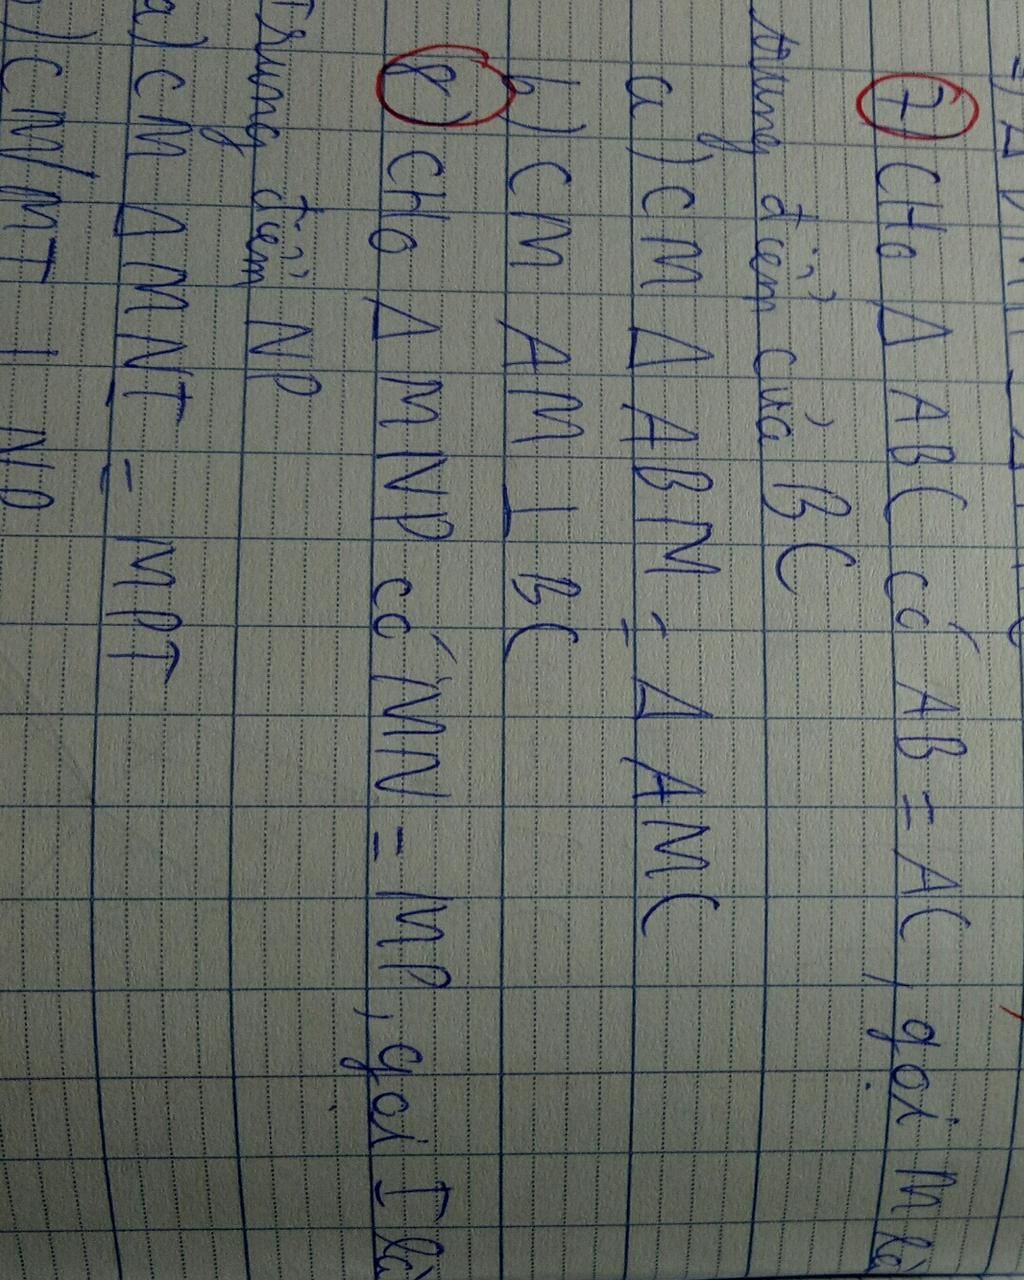 7) CHo Δ ABC có AB = AC, gọi M là
trung điểm của BC
a) CM Δ ABM = Δ AMC
b) CM AM ⊥ BC
8) CHo Δ MNP có MN = MP, gọi I là
Trung điểm NP
a) CM Δ MNI = MPI
) CM MI ⊥ NP